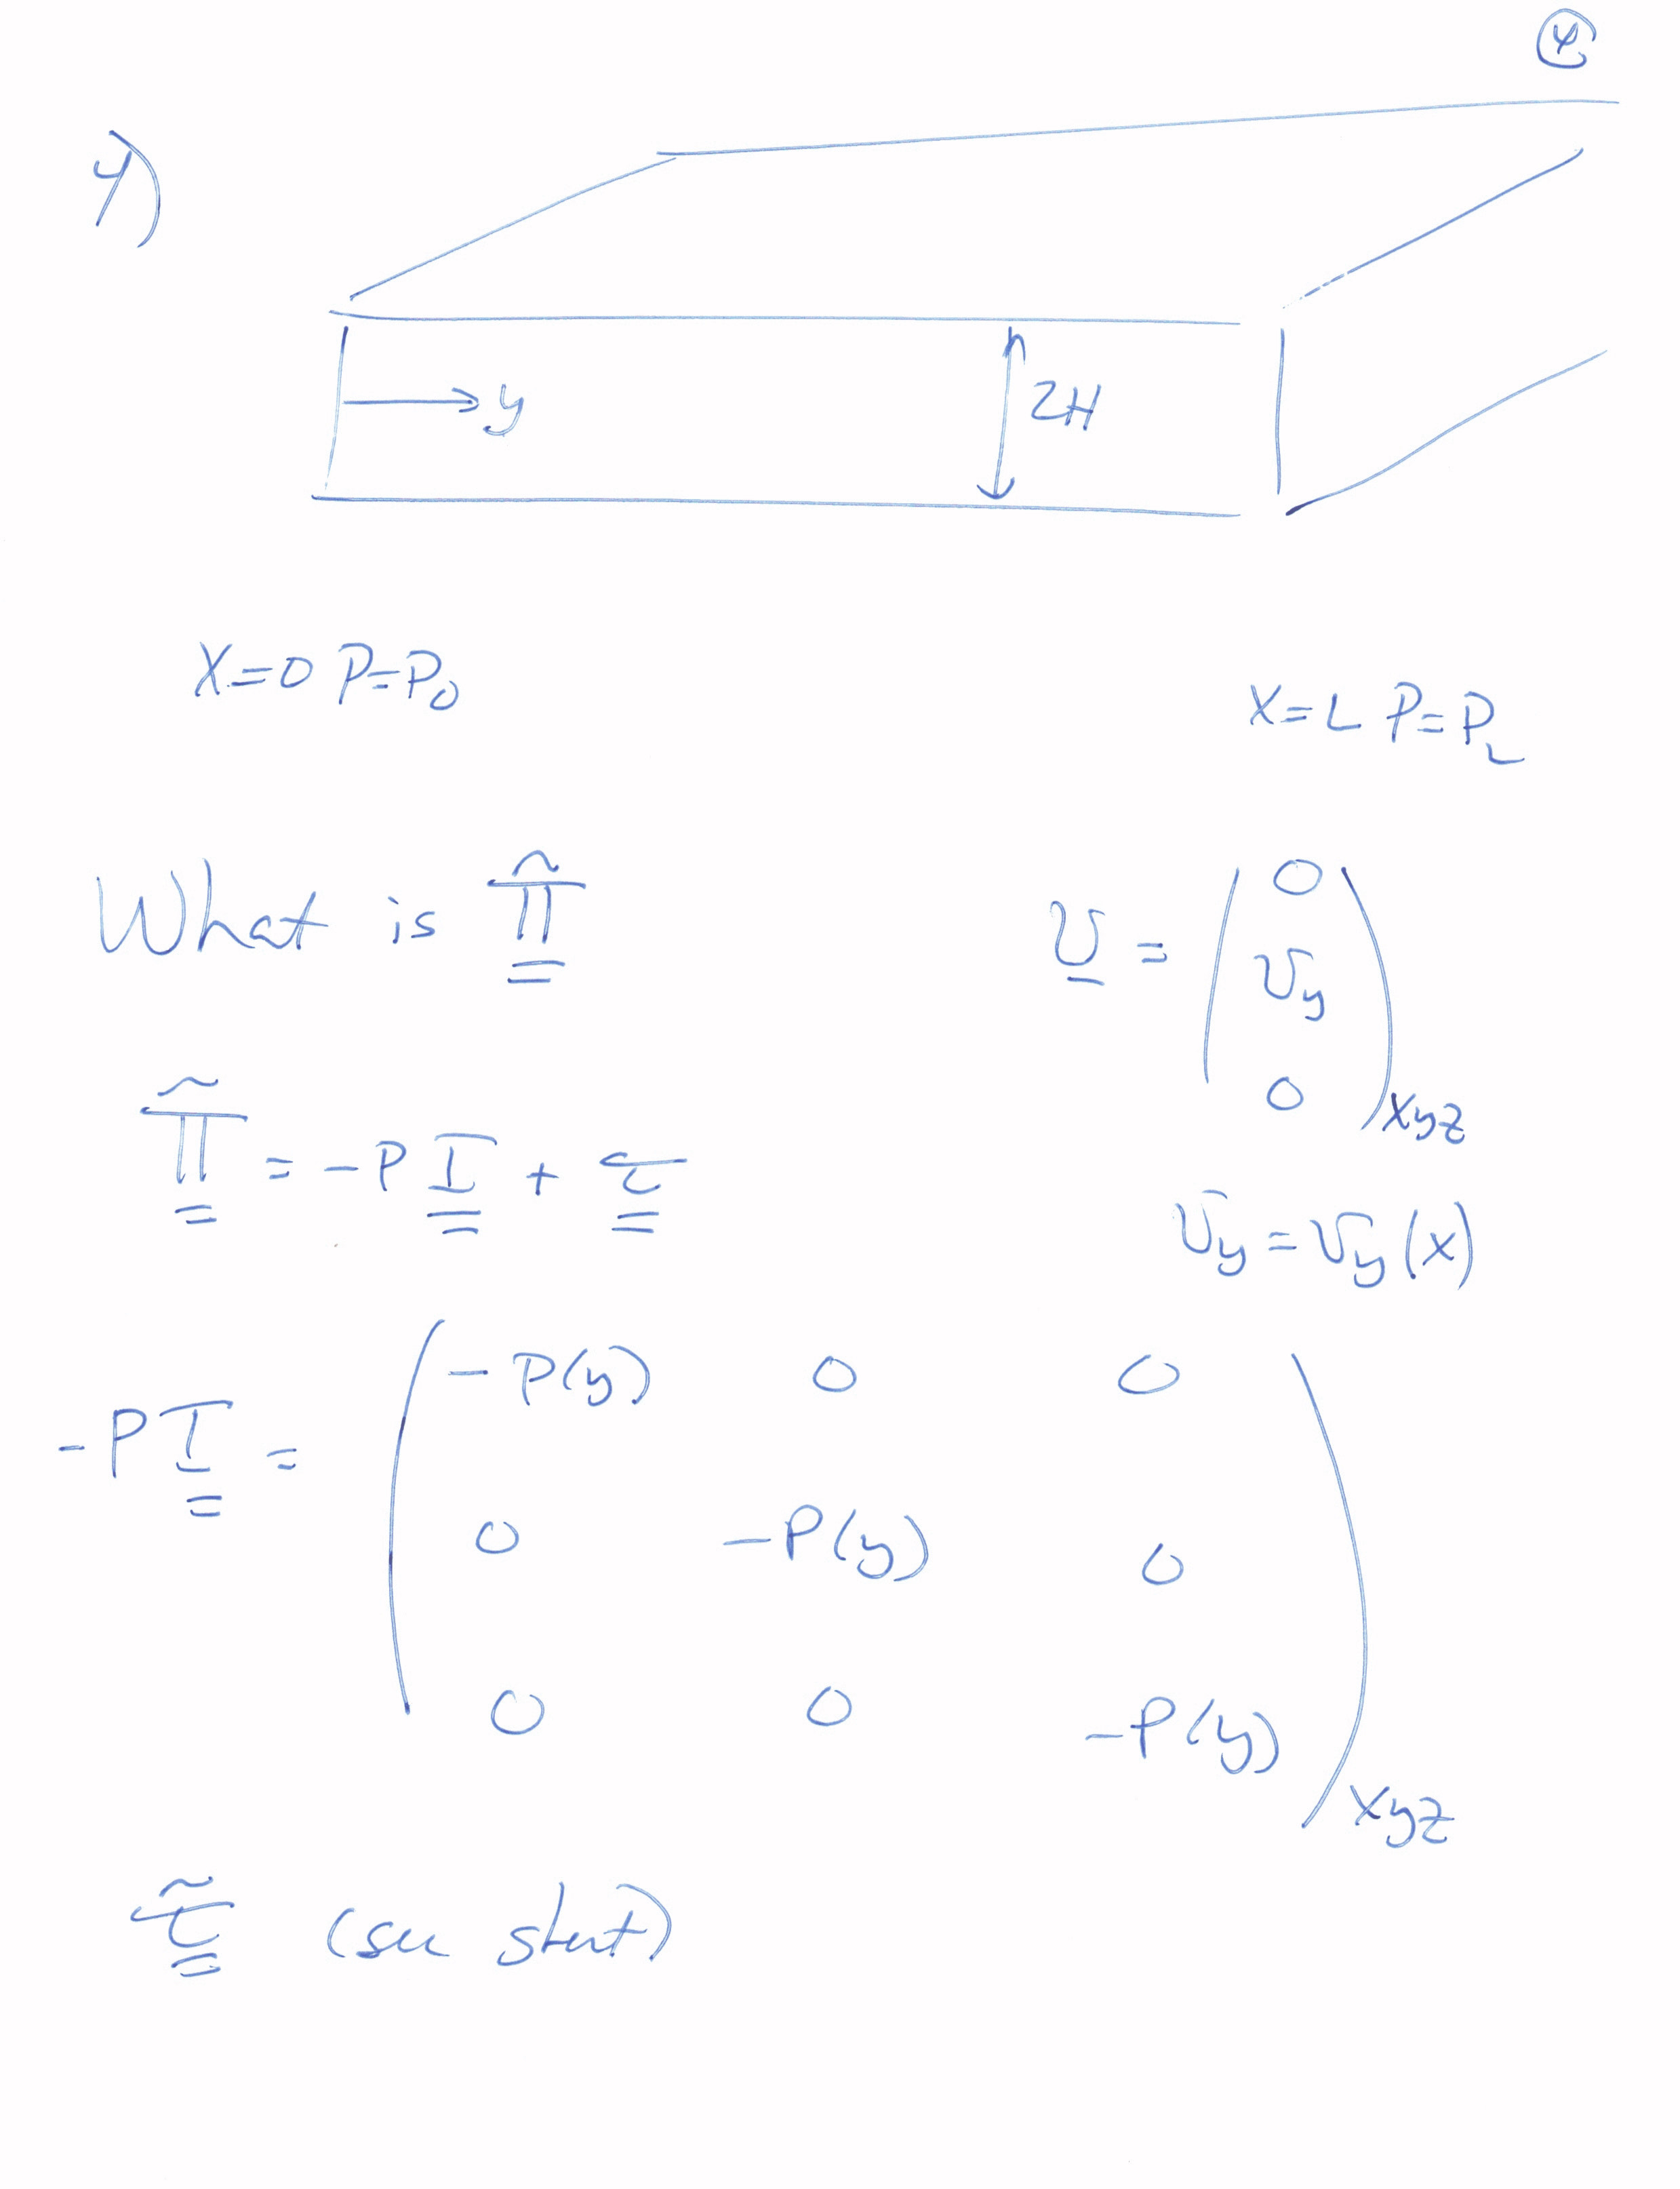 ④
4)
y
2H
X=0 P=P₀
X=L P=P_L
What is \underline{\underline{\tilde{Π}}}
\underline{v} = \begin{pmatrix} 0 \\ v_y \\ 0 \end{pmatrix}_{xyz}
\underline{\underline{\tilde{Π}}} = -P \underline{\underline{I}} + \underline{\underline{τ}}
v_y = v_y(x)
-P \underline{\underline{I}} = \begin{pmatrix} -P(y) & 0 & 0 \\ 0 & -P(y) & 0 \\ 0 & 0 & -P(y) \end{pmatrix}_{xyz}
\underline{\underline{\tilde{τ}}} (see sheet)